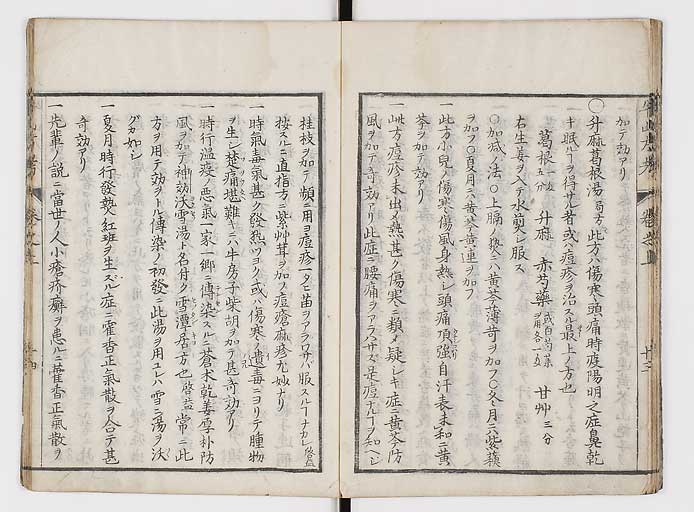 加テ効アリ
○升麻葛根湯 局方 此方ハ傷寒頭痛時疫陽明之症鼻乾
キ眠ルヿヲ得サル者或ハ痘疹ヲ治スル最上ノ方也
葛根 升麻 赤芍薬 甘艸 三分
右生姜ヲ入テ水煎シ服ス
○加減ノ法○上膈ノ熱ニハ黄芩薄荷ヲ加フ○冬月ニハ紫蘓
ヲ加フ○夏月ニハ黄芩黄連ヲ加フ
一此方小児ノ傷寒傷風身熱シ頭痛項強自汗表未和ニ黄
芩ヲ加テ効アリ
一此方痘疹未出メ熱甚ク傷寒ニ類メ疑シキ症ニ黄芩防
風ヲ加テ奇効アリ此症ニ腰痛ヲアラハサズ是痘
桂枝ヲ加テ頻ニ用ヨ痘疹一タビ苗ヲアラワサバ服スルヿナカレ
按スルニ直指方ニ紫艸茸ヲ加フ痘瘡麻疹尤妙ナリ
一時氣毒氣甚シク發熱ツヨク或ハ傷寒ノ遺毒ニヨリテ腫物
ヲ生シ楚痛堪難キニハ牛房子柴胡ヲ加テ甚奇効アリ
一時行瘟疫ノ悪氣一家一郷ニ傳染スルニ蒼朮乾姜厚朴防
風ヲ加テ神効沃雪湯ト名付ク雪潭居方也 啓益常ニ此
方ヲ用テ効ヲトル傳染ノ初發ニ此湯ヲ用ユレハ雪ニ湯ヲ沃
グカ如シ
一夏月時行發熱紅班ヲ生スル症ニ藿香正氣散ヲ合テ甚
奇効アリ
一先輩ノ説ニ當世ノ人小瘡疥癬ヲ患ルニ藿香正氣散ヲ